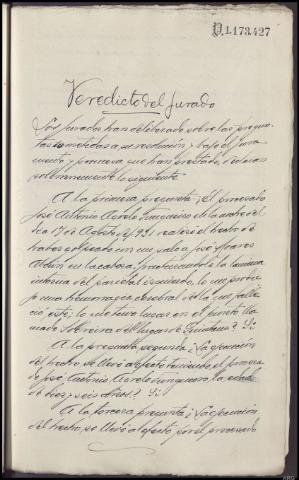 D.1.173.427
Veredicto del Jurado
Los Jurados han deliberado sobre las pregun-
tas sometidas a su resolución y bajo el jura-
mento y promesa que han prestado, declaran
solemnemente lo siguiente
A la primera pregunta ¿El procesado
José Antonio Acelo Junquero de la tarde del
dia 17 de Agosto de 1921 realizó el hecho de
haber golpeado con un palo a José
en la cabeza, fracturandole la lamina
interna del parietal izquierdo, lo que produ-
jo una hemorragia cerebral de la que falle-
ció este; lo que tuvo lugar en el punto lla-
mado del lugar de Si
A la pregunta segunda ¿La ejecución
del hecho se llevó a efecto teniendo el procesa-
do José Antonio Acelo Junquero, la edad
de diez y seis años? Si
A la tercera pregunta ¿La ejecución
del hecho, se llevó a efecto por el procesado
ARG